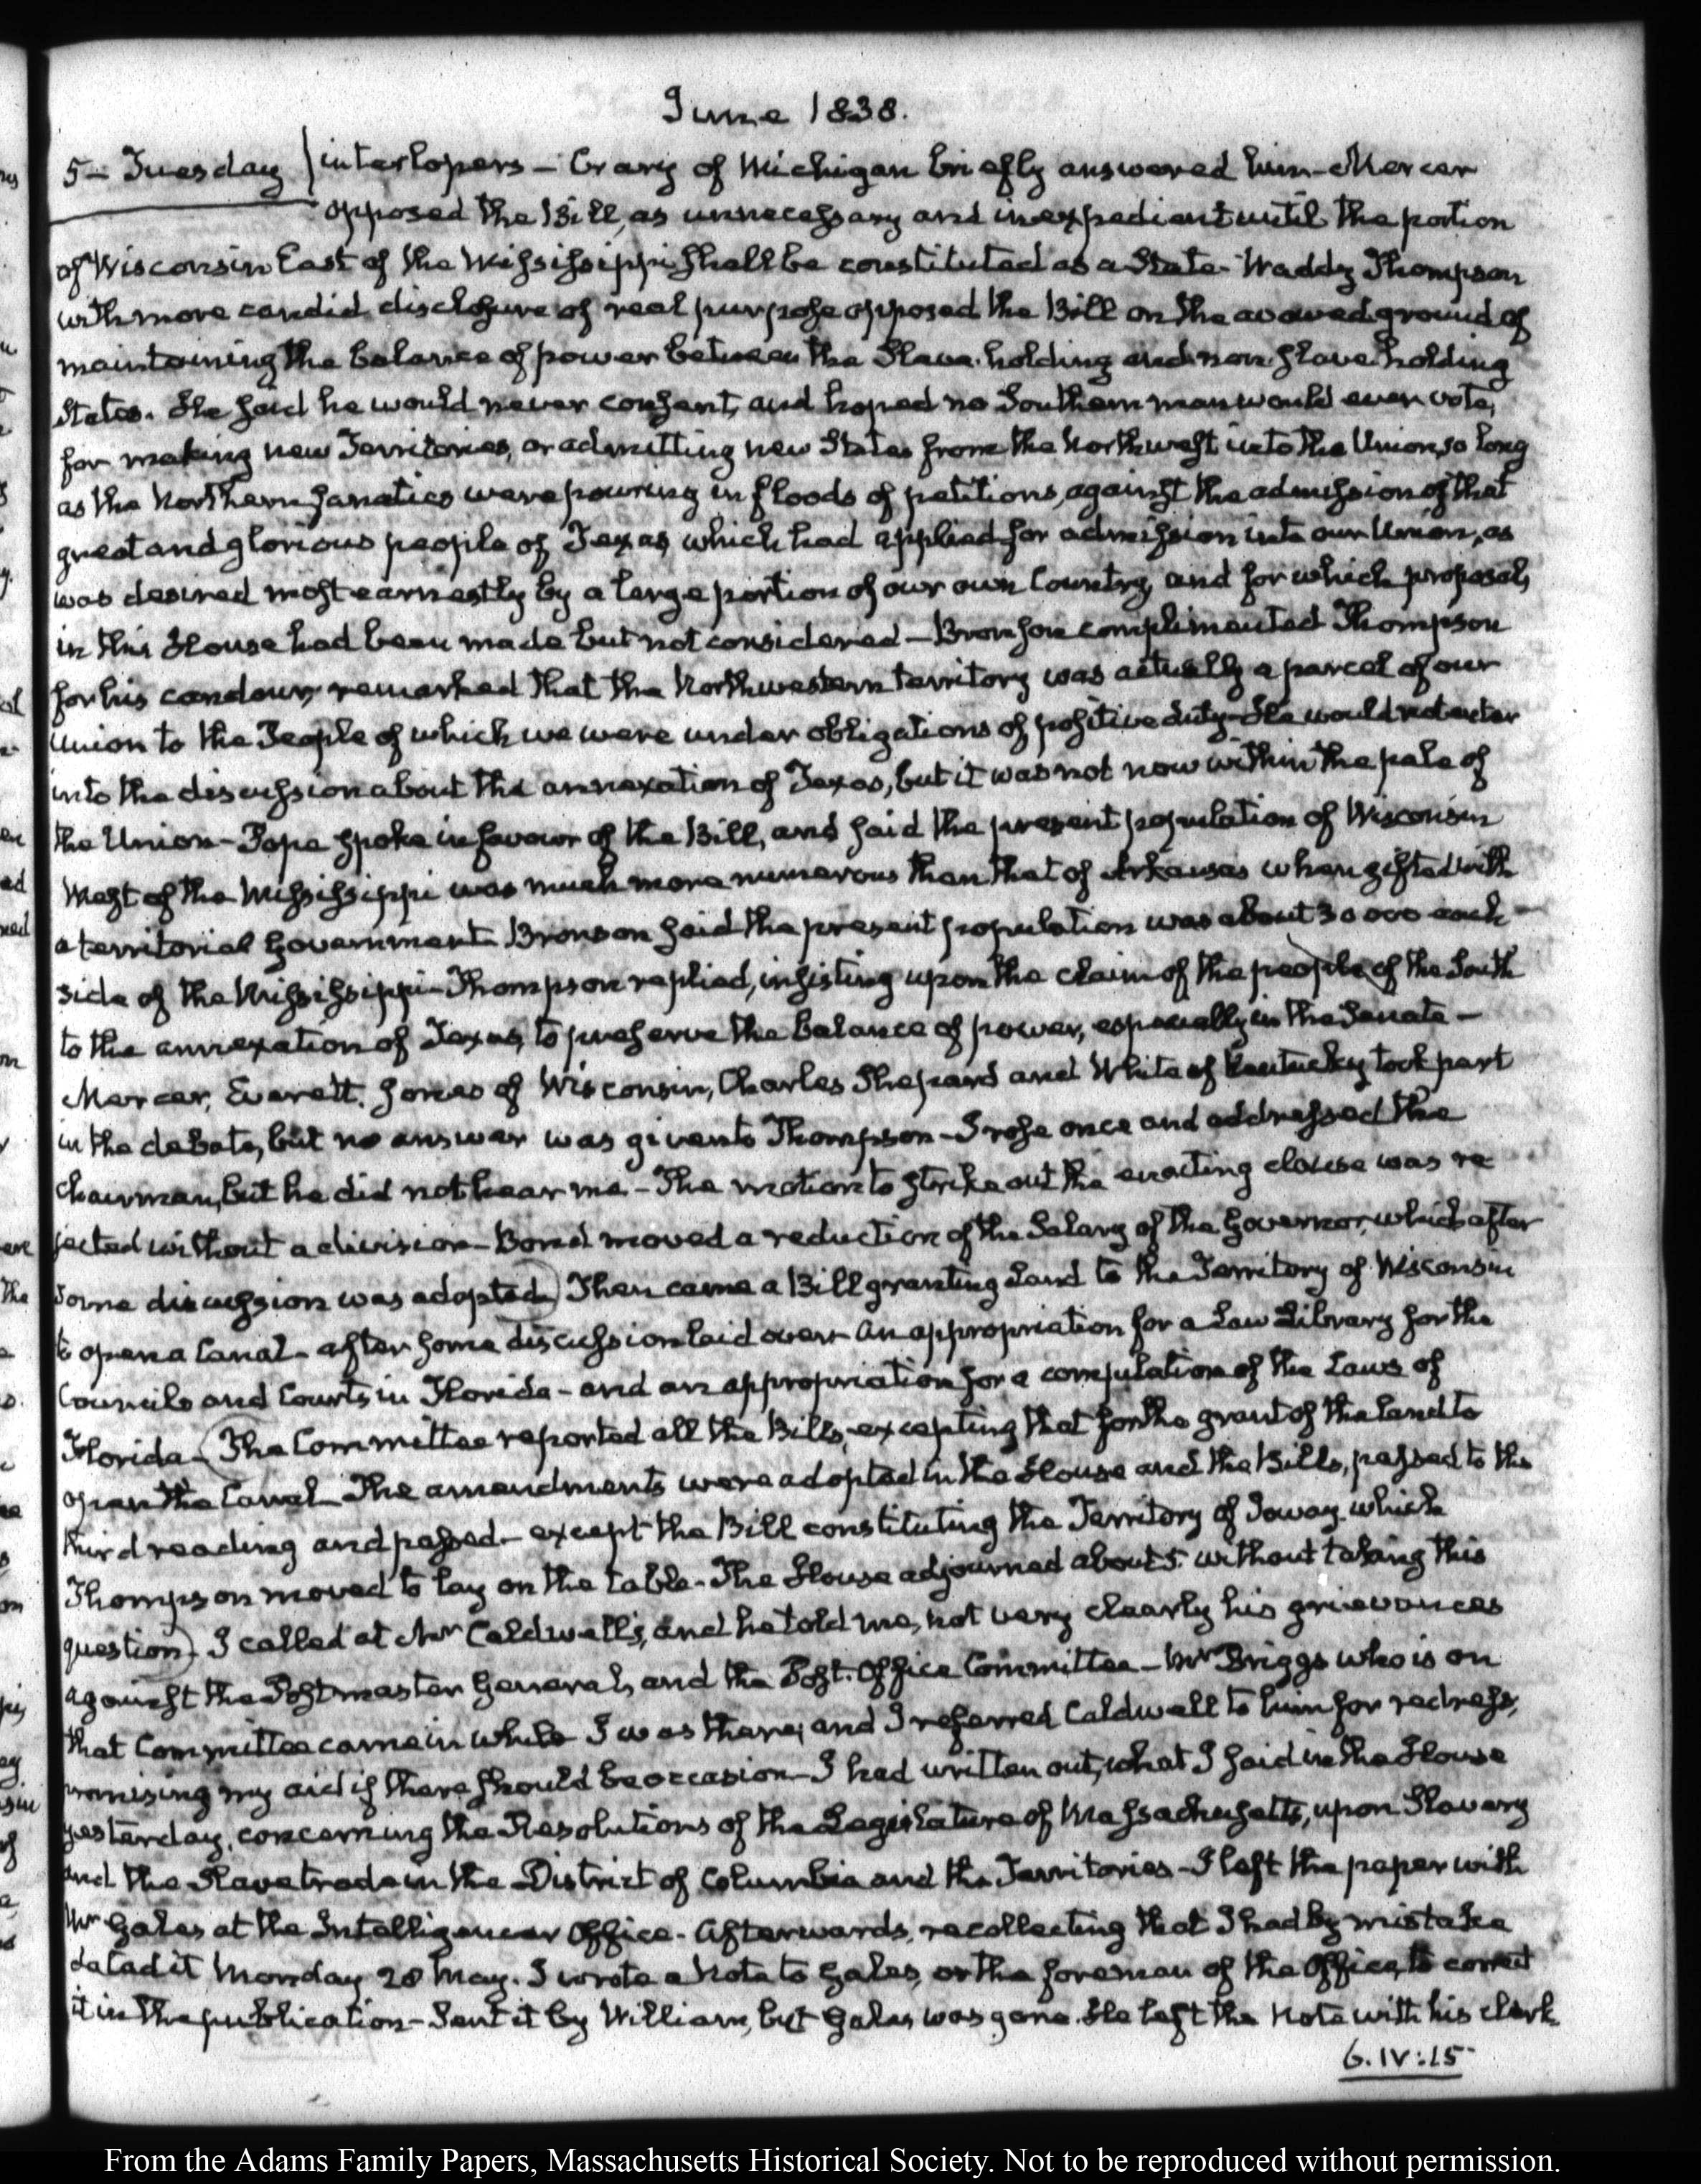 June 1838.
5 - Tuesday interlopers - Crary of Michigan briefly answered him - Mercer
opposed the Bill, as unnecessary and inexpedient until the portion
of Wisconsin East of the Mississippi shall be constituted as a State - Waddy Thompson
with more candid disclosure of real purpose opposed the Bill on the avowed ground of
maintaining the balance of power between the Slave-holding and non slave holding
States. He said he would never consent, and hoped no Southern man would ever vote,
for making new Territories, or admitting new States from the Northwest into the Union, so long
as the Northern fanatics were pouring in floods of petitions, against the admission of that
great and glorious people of Texas, which had applied for admission into our Union, as
was desired most earnestly by a large portion of our own Country, and for which proposals
in this House had been made but not considered - Bronson complimented Thompson
for his candour, remarked that the Northwestern territory was actually a parcel of our
Union to the People of which we were under obligations of positive duty - He would not enter
into the discussion about the annexation of Texas, but it was not now within the pale of
the Union - Pope spoke in favour of the Bill, and said the present population of Wisconsin
West of the Mississippi was much more numerous than that of Arkansas when gifted with
a territorial Government. Bronson said the present population was about 30 000 each
side of the Mississippi - Thompson replied, insisting upon the claim of the people of the South
to the annexation of Texas, to preserve the balance of power, especially in the Senate -
Mercer, Everett, Jones of Wisconsin, Charles Shepard and White of Kentucky took part
in the debate, but no answer was given to Thompson - I rose once and addressed the
Chairman, but he did not hear me - The motion to strike out the enacting clause was re
jected without a division - Bond moved a reduction of the Salary of the Governor, which after
some discussion was adopted) Then came a Bill granting Land to the Territory of Wisconsin
to open a Canal - after some discussion laid over - An appropriation for a Law Library for the
Councils and Courts in Florida - and an appropriation for a compilation of the Laws of
Florida - (The Committee reported all the Bills, excepting that for the grant of the land to
open the Canal - The amendments were adopted in the House and the Bills, passed to the
third reading and passed - except the Bill constituting the Territory of Ioway - which
Thompson moved to lay on the table - The House adjourned about 5 without taking this
question). I called at Mr Caldwell's, and he told me, not very clearly his grievances
against the Postmaster General, and the Post-Office Committee - Mr Briggs who is on
that Committee came in while I was there, and I referred Caldwell to him for redress,
promising my aid if there should be occasion - I had written out, what I said in the House
yesterday, concerning the Resolutions of the Legislature of Massachusetts, upon Slavery
and the Slave trade in the District of Columbia and the Territories - I left the paper with
Mr Gales at the Intelligencer Office. Afterwards, recollecting that I had by mistake
dated it Monday 28 May. I wrote a Note to Gales, or the foreman of the Office, to correct
it in the publication - Sent it by William, but Gales was gone. He left the Note with his clerk
6.IV:15
From the Adams Family Papers, Massachusetts Historical Society. Not to be reproduced without permission.